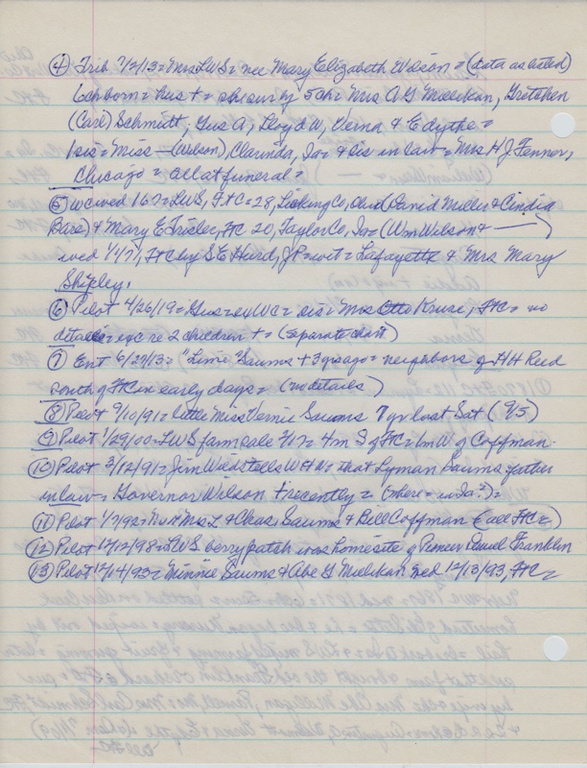 ④ Trib 7/2/13 = Mrs LWS = nee Mary Elizabeth Wilson = (data as listed)
6 ch born = hus + = ch surv by 5 ch = Mrs A G Millikan, Gretchen
(Carl) Schmidt, Gus A, Lloyd W, Verna & Edythe =
1 sis = Miss — (Wilson), Clarinda, Ia = & sis in law = Mrs H J Fenner,
Chicago = all at funeral =
⑤ WC wed 162 = LWS, FtC = 28, Licking Co, Ohio (Daniel Miller & Cindia
Bare) & Mary E Trisler, FtC 20, Taylor Co, Ia = (Wm Wilson & —)
wed 1/4/71, FtC by S E Hurd, JP = wit = Lafayette & Mrs Mary
Shipley.
⑥ Pilot 4/26/19 = Gus ex WC = sis = Mrs Otto Kruse, FtC = no
details = exc re 2 children + = (separate chart)
⑦ Ent 6/27/13 = "Lime" Saums + 3 yrs ago = neighbors of H H Reid
south of FtC in early days = (no details)
⑧ Pilot 9/10/91 = little Miss Vernie Saums 7 yr last Sat (9/5)
⑨ Pilot 1/29/00 = LWS farm sale 2/17 = 4m S of FtC = 1m W of Coffman.
⑩ Pilot 3/12/91 = Jim Weidstells that Lyman Saums father
in law = Governor Wilson + recently = (where = in Ia?) =
⑪ Pilot 1/7/92 = Mr & Mrs L & Chas Saums & Bill Coffman (all FtC =)
⑫ Pilot 12/12/98 = LWS berry patch was homesite of Pioneer David Franklin
⑬ Pilot 12/14/93 = Minnie Saums & Abe G Millikan wed 12/13/93, FtC =